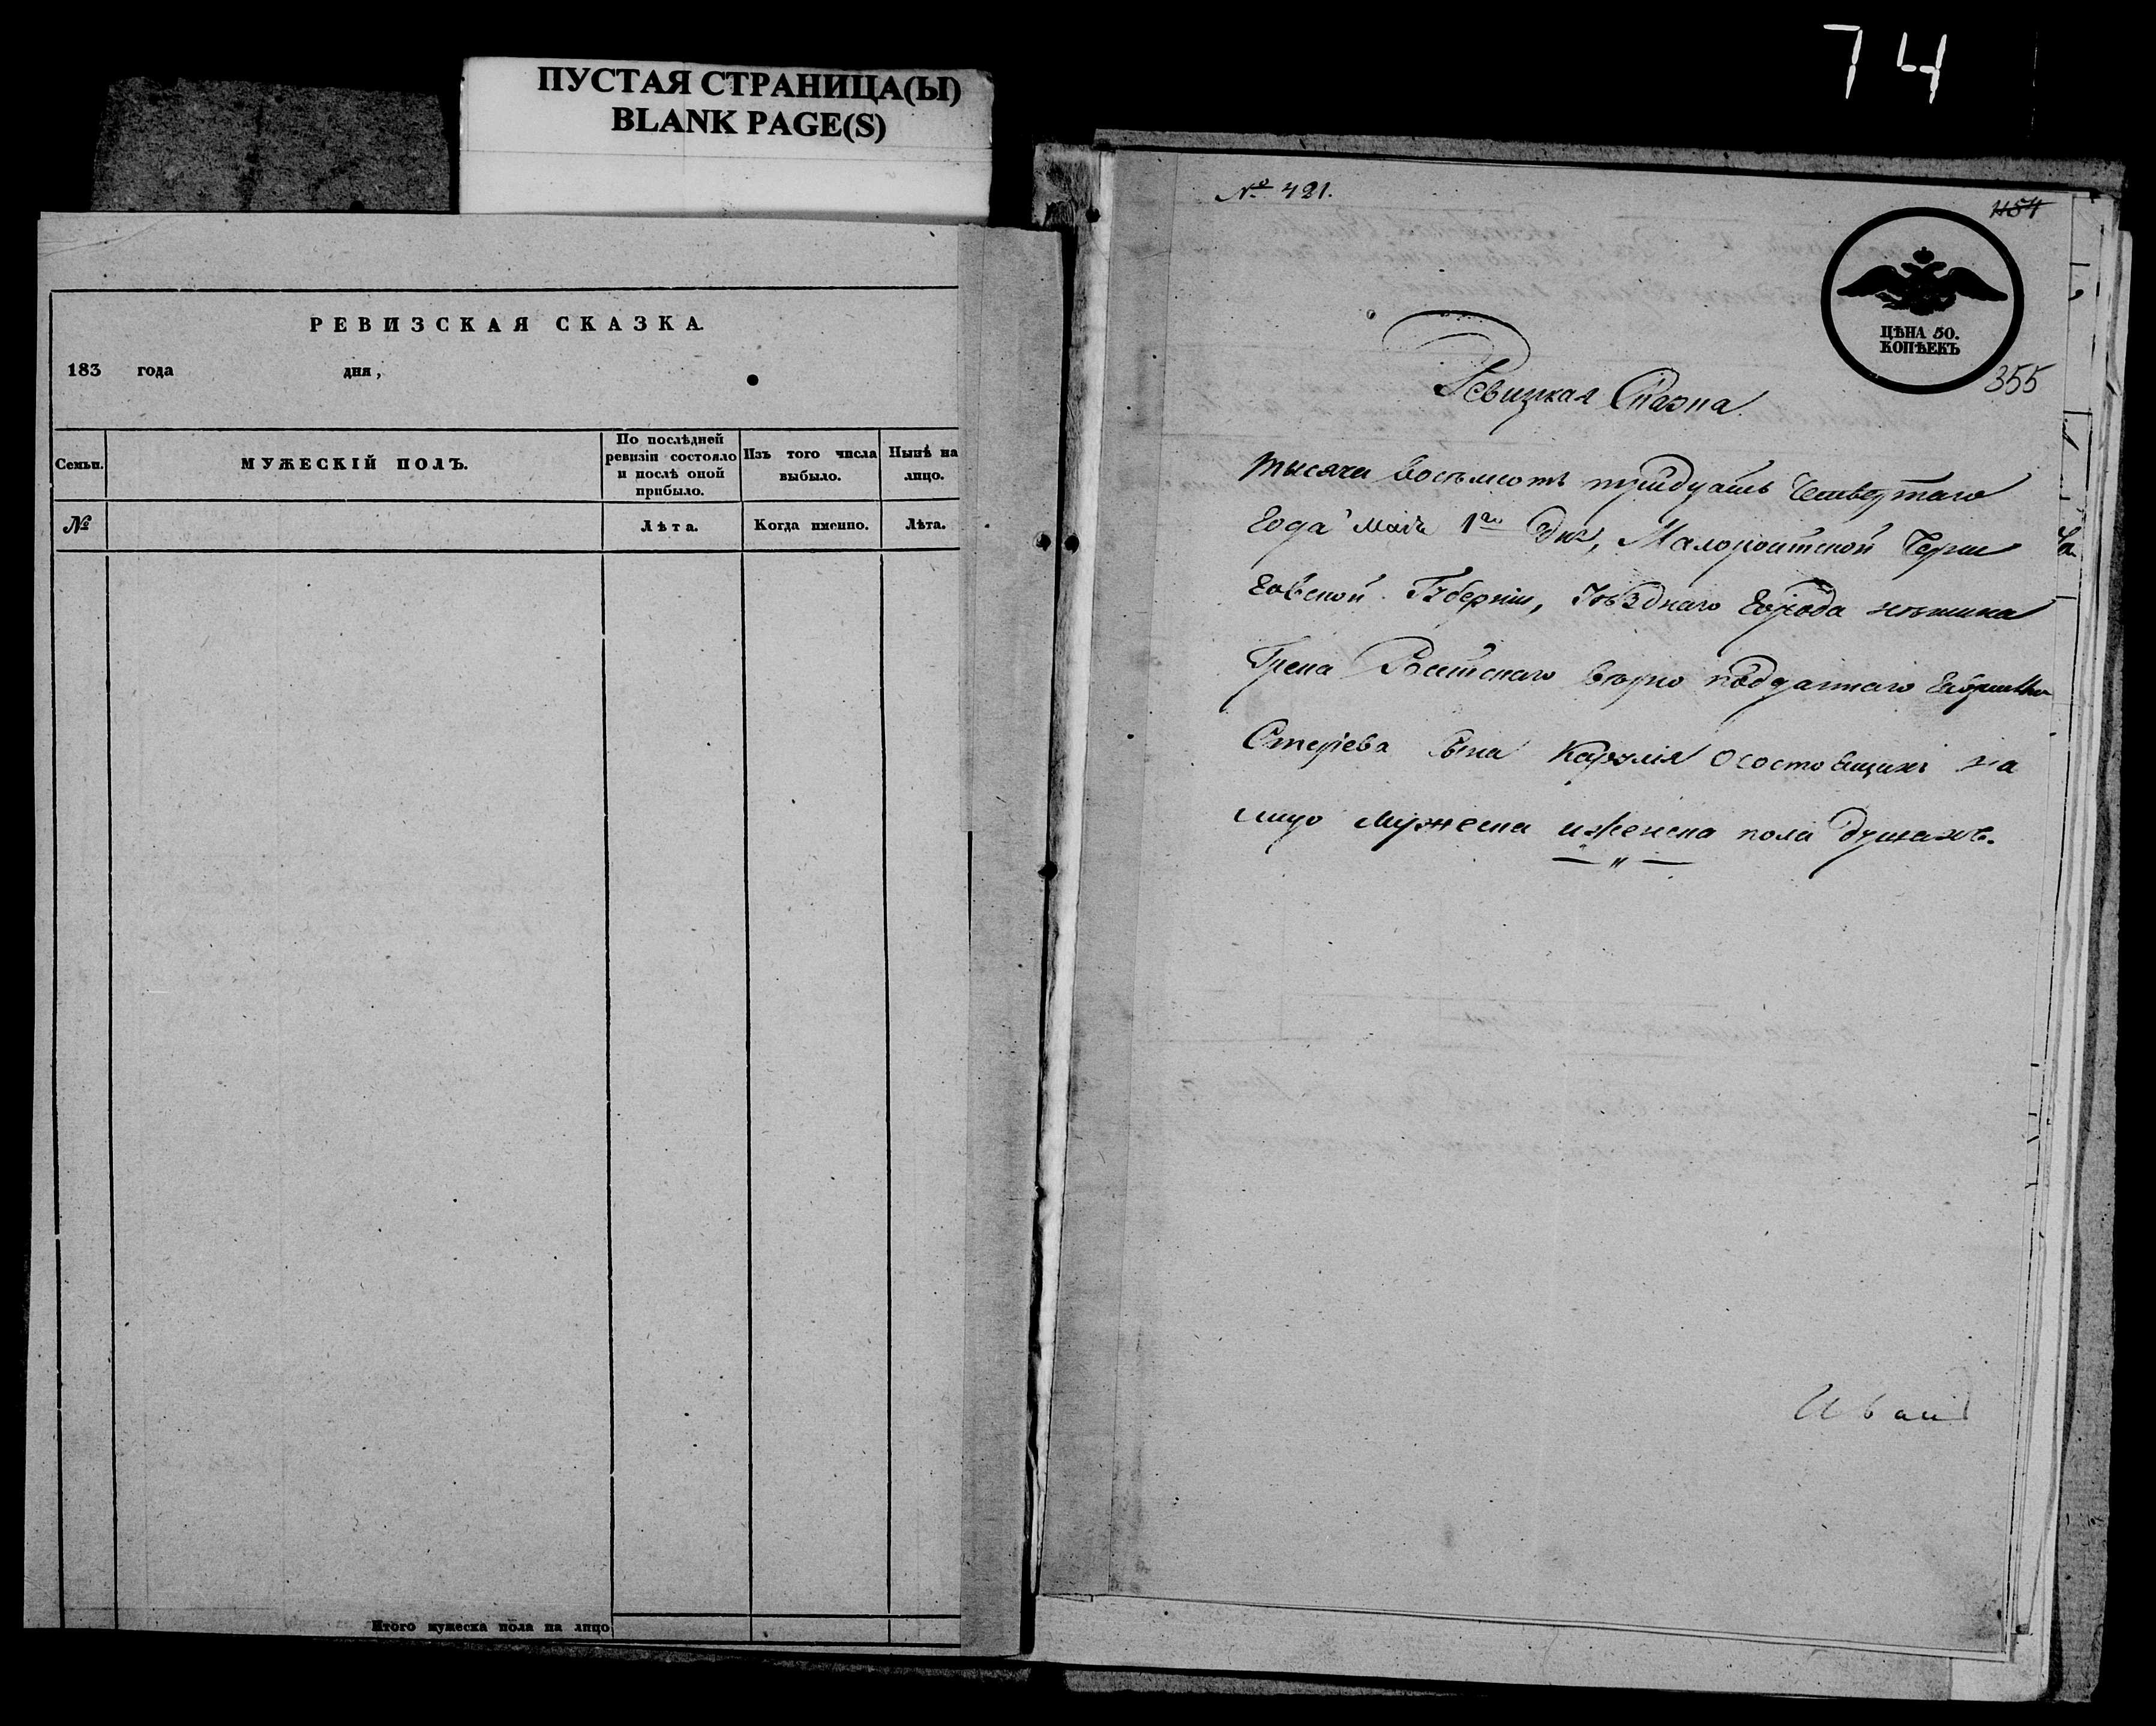 74
ПУСТАЯ СТРАНИЦА(Ы)
BLANK PAGE(S)
РЕВИЗСКАЯ СКАЗКА.
183 года дня,
Семьи.
МУЖЕСКІЙ ПОЛЪ.
По послѣдней
ревизіи состояло
и послѣ оной
прибыло.
Изъ того числа
выбыло.
Нынѣ на
лицо.
№
Лѣта.
Когда именно.
Лѣта.
Итого мужеска пола на лицо
№ 421.
1154
ЦѢНА 50.
КОПѢЕКЪ
355
Ревизкая Сказка.
тысяча восемьсотъ тридцать Четвертаго
Года Маія 1го дня, Малороссійской Черни
говской Губерніи, Уѣзднаго Города нѣжина
Грека Россійскаго вѣрно подданнаго
Стеріева сына о состоящихъ на
лицо мужеска и женска пола душахъ.
Иван